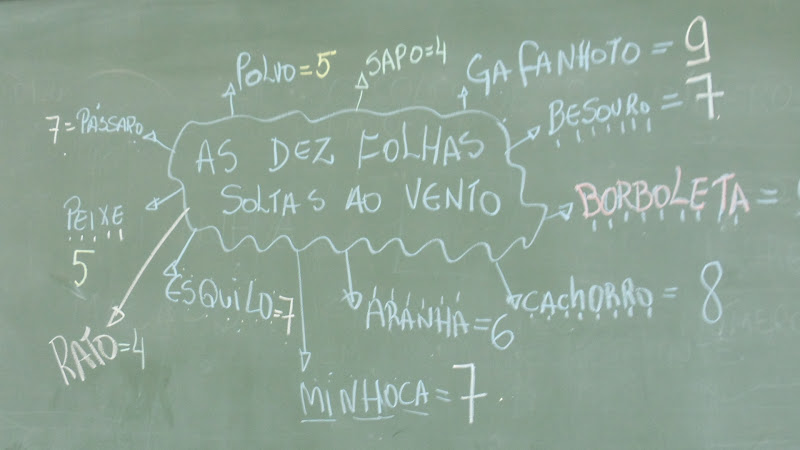 POLVO = 5
SAPO = 4
GAFANHOTO = 9
7 = PÁSSARO
BESOURO = 7
AS DEZ FOLHAS
SOLTAS AO VENTO
PEIXE
5
BORBOLETA =
ESQUILO = 7
ARANHA = 6
CACHORRO = 8
RATO = 4
MINHOCA = 7